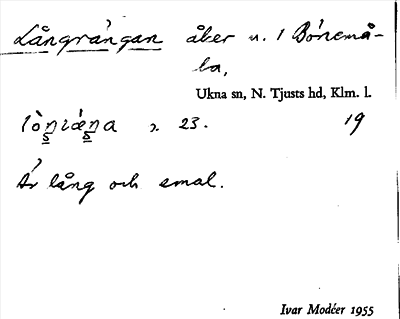 Långrångan åker u. 1 Bönemå-
la,
Ukna sn, N. Tjusts hd, Klm. l.
23. 19
Är lång och smal.
Ivar Modéer 1955